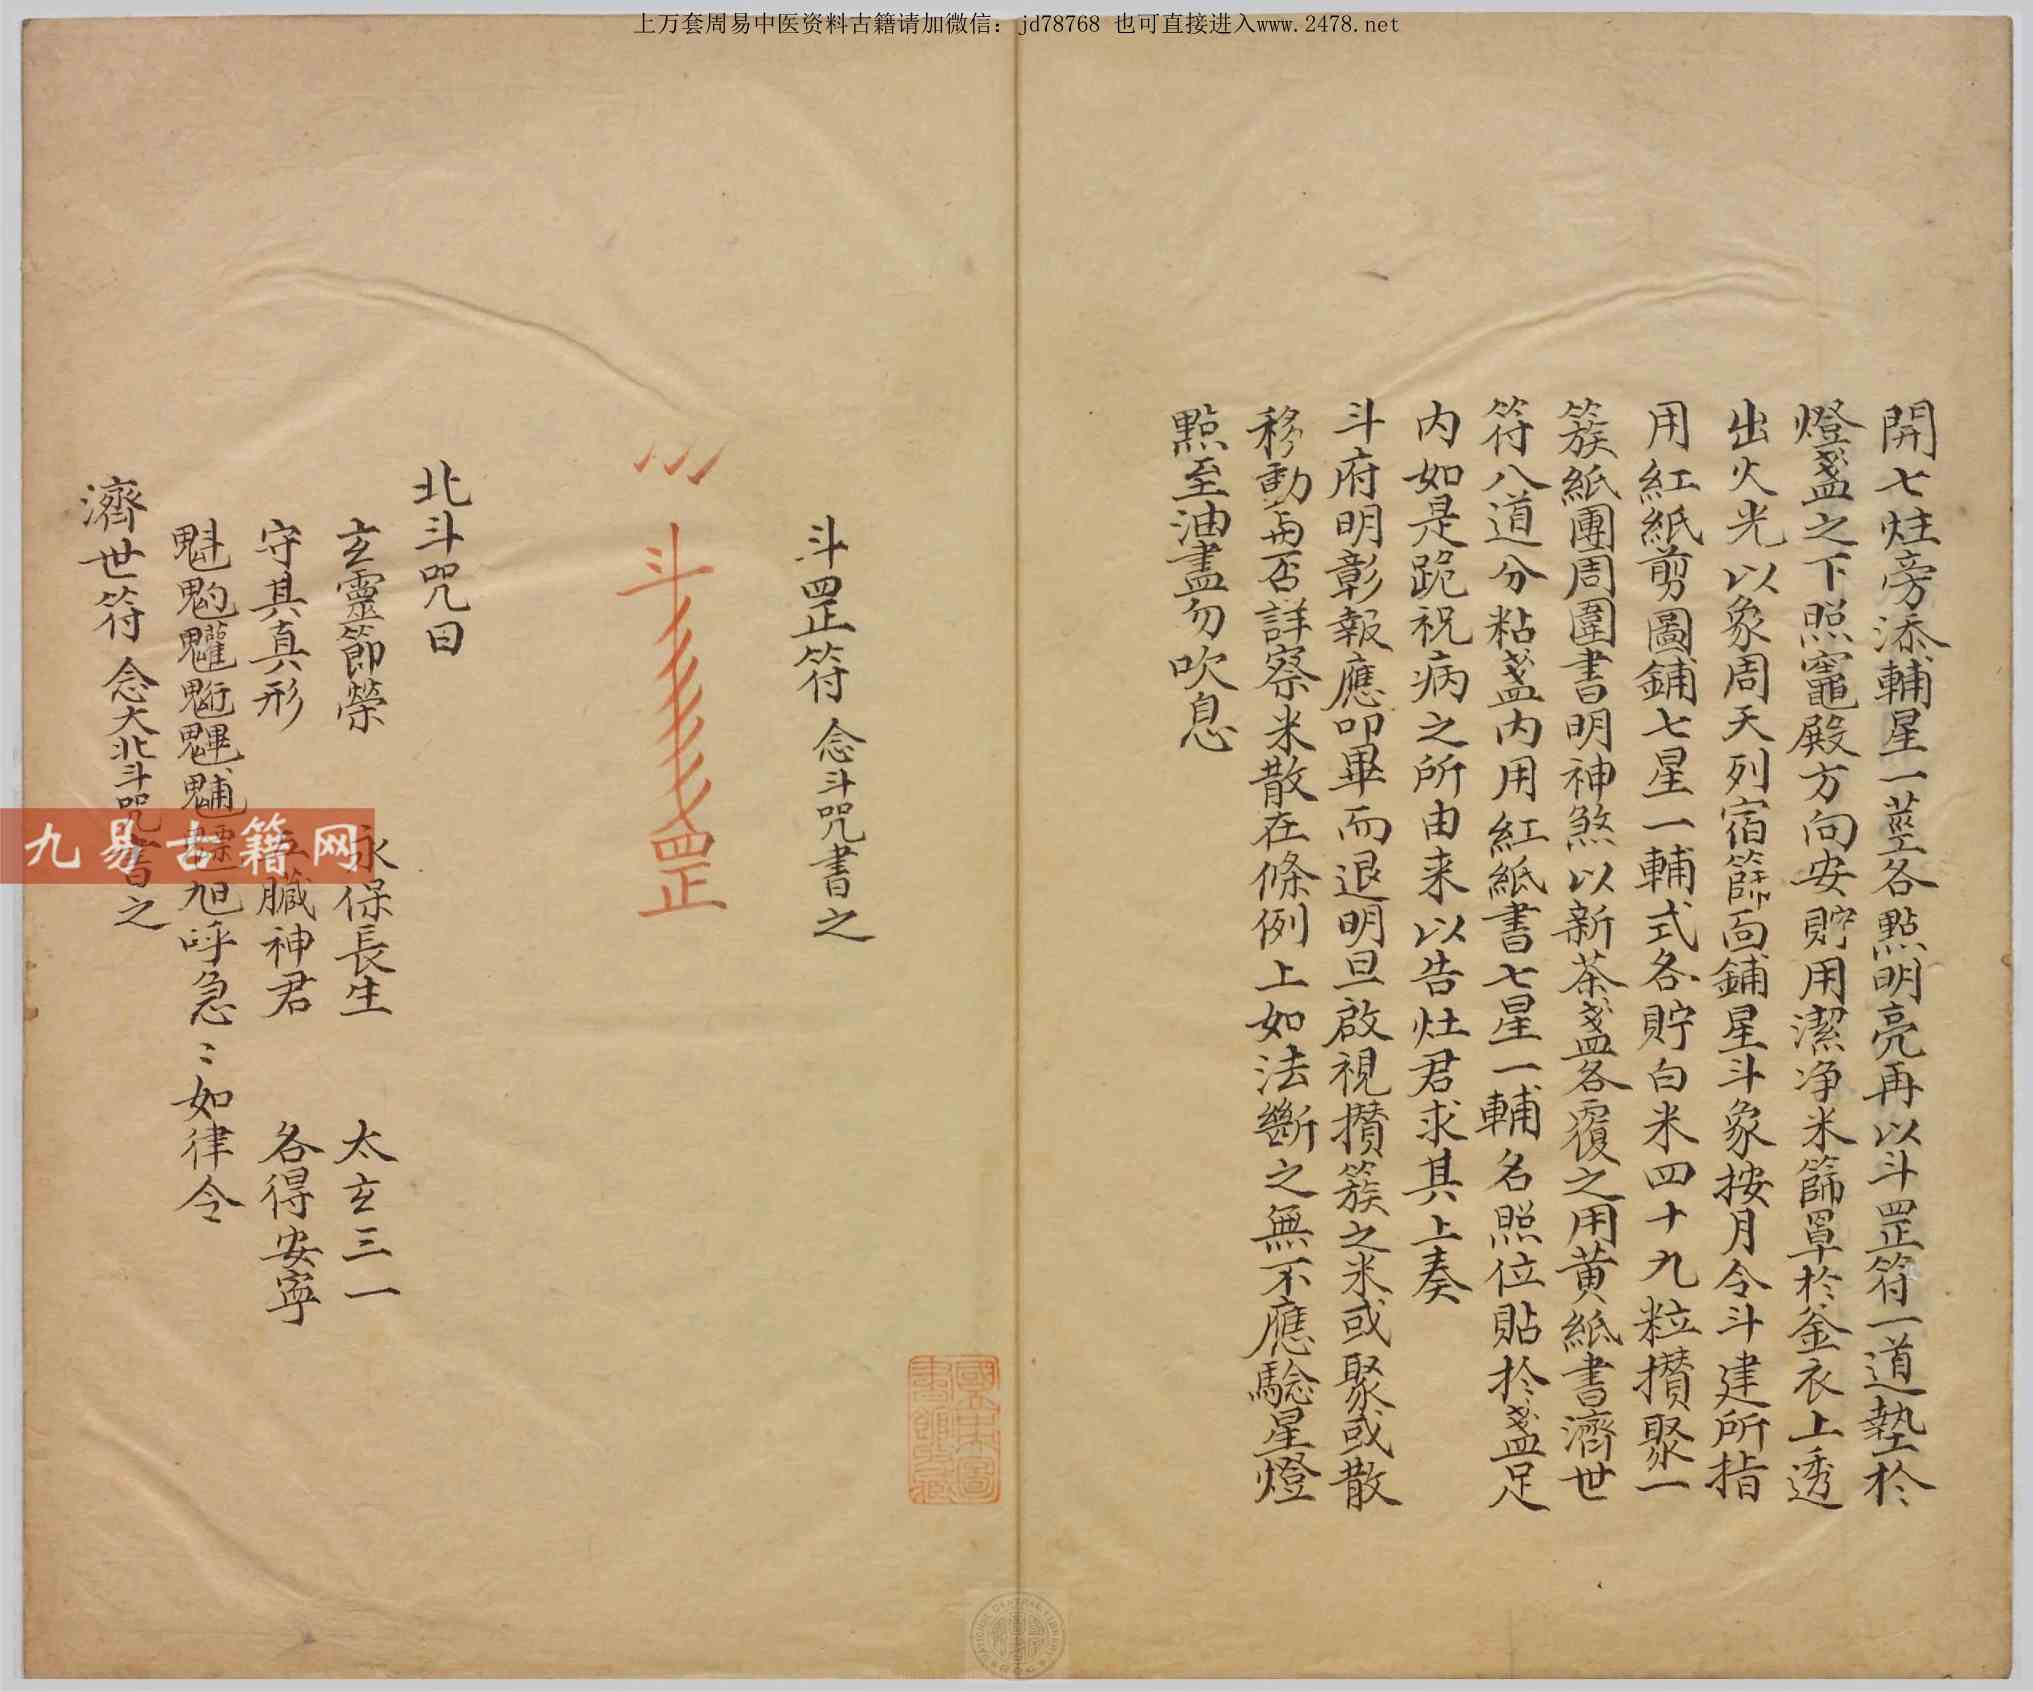 上万套周易中医资料古籍请加微信：jd78768 也可直接进入www.2478.net
開七炷旁添輔星一莖各點明亮再以斗罡符一道墊於
燈盞之下照竈殿方向安貯用潔净米篩罩於釜衣上透
出火光以象周天列宿篩面鋪星斗象按月令斗建所指
用紅紙剪圖鋪七星一輔式各貯白米四十九粒攢聚一
簇紙團周圍書明神煞以新茶盞各覆之用黄紙書濟世
符八道分粘盞内用紅紙書七星一輔名照位貼於盞足
内如是跪祝病之所由来以告灶君求其上奏
斗府明彰報應叩畢而退明旦啟視攢簇之米或聚或散
移動與否詳察米散在條例上如法斷之無不應驗星燈
點至油盡勿吹息
斗罡符 念斗咒書之
斗罡
北斗咒曰
玄靈節榮 永保長生 太玄三一
守其真形 五臟神君 各得安寧
魁𩲃䰢魓 呼急〻如律令
濟世符 念大北斗咒書之
九易古籍网
國立中央圖書館收藏